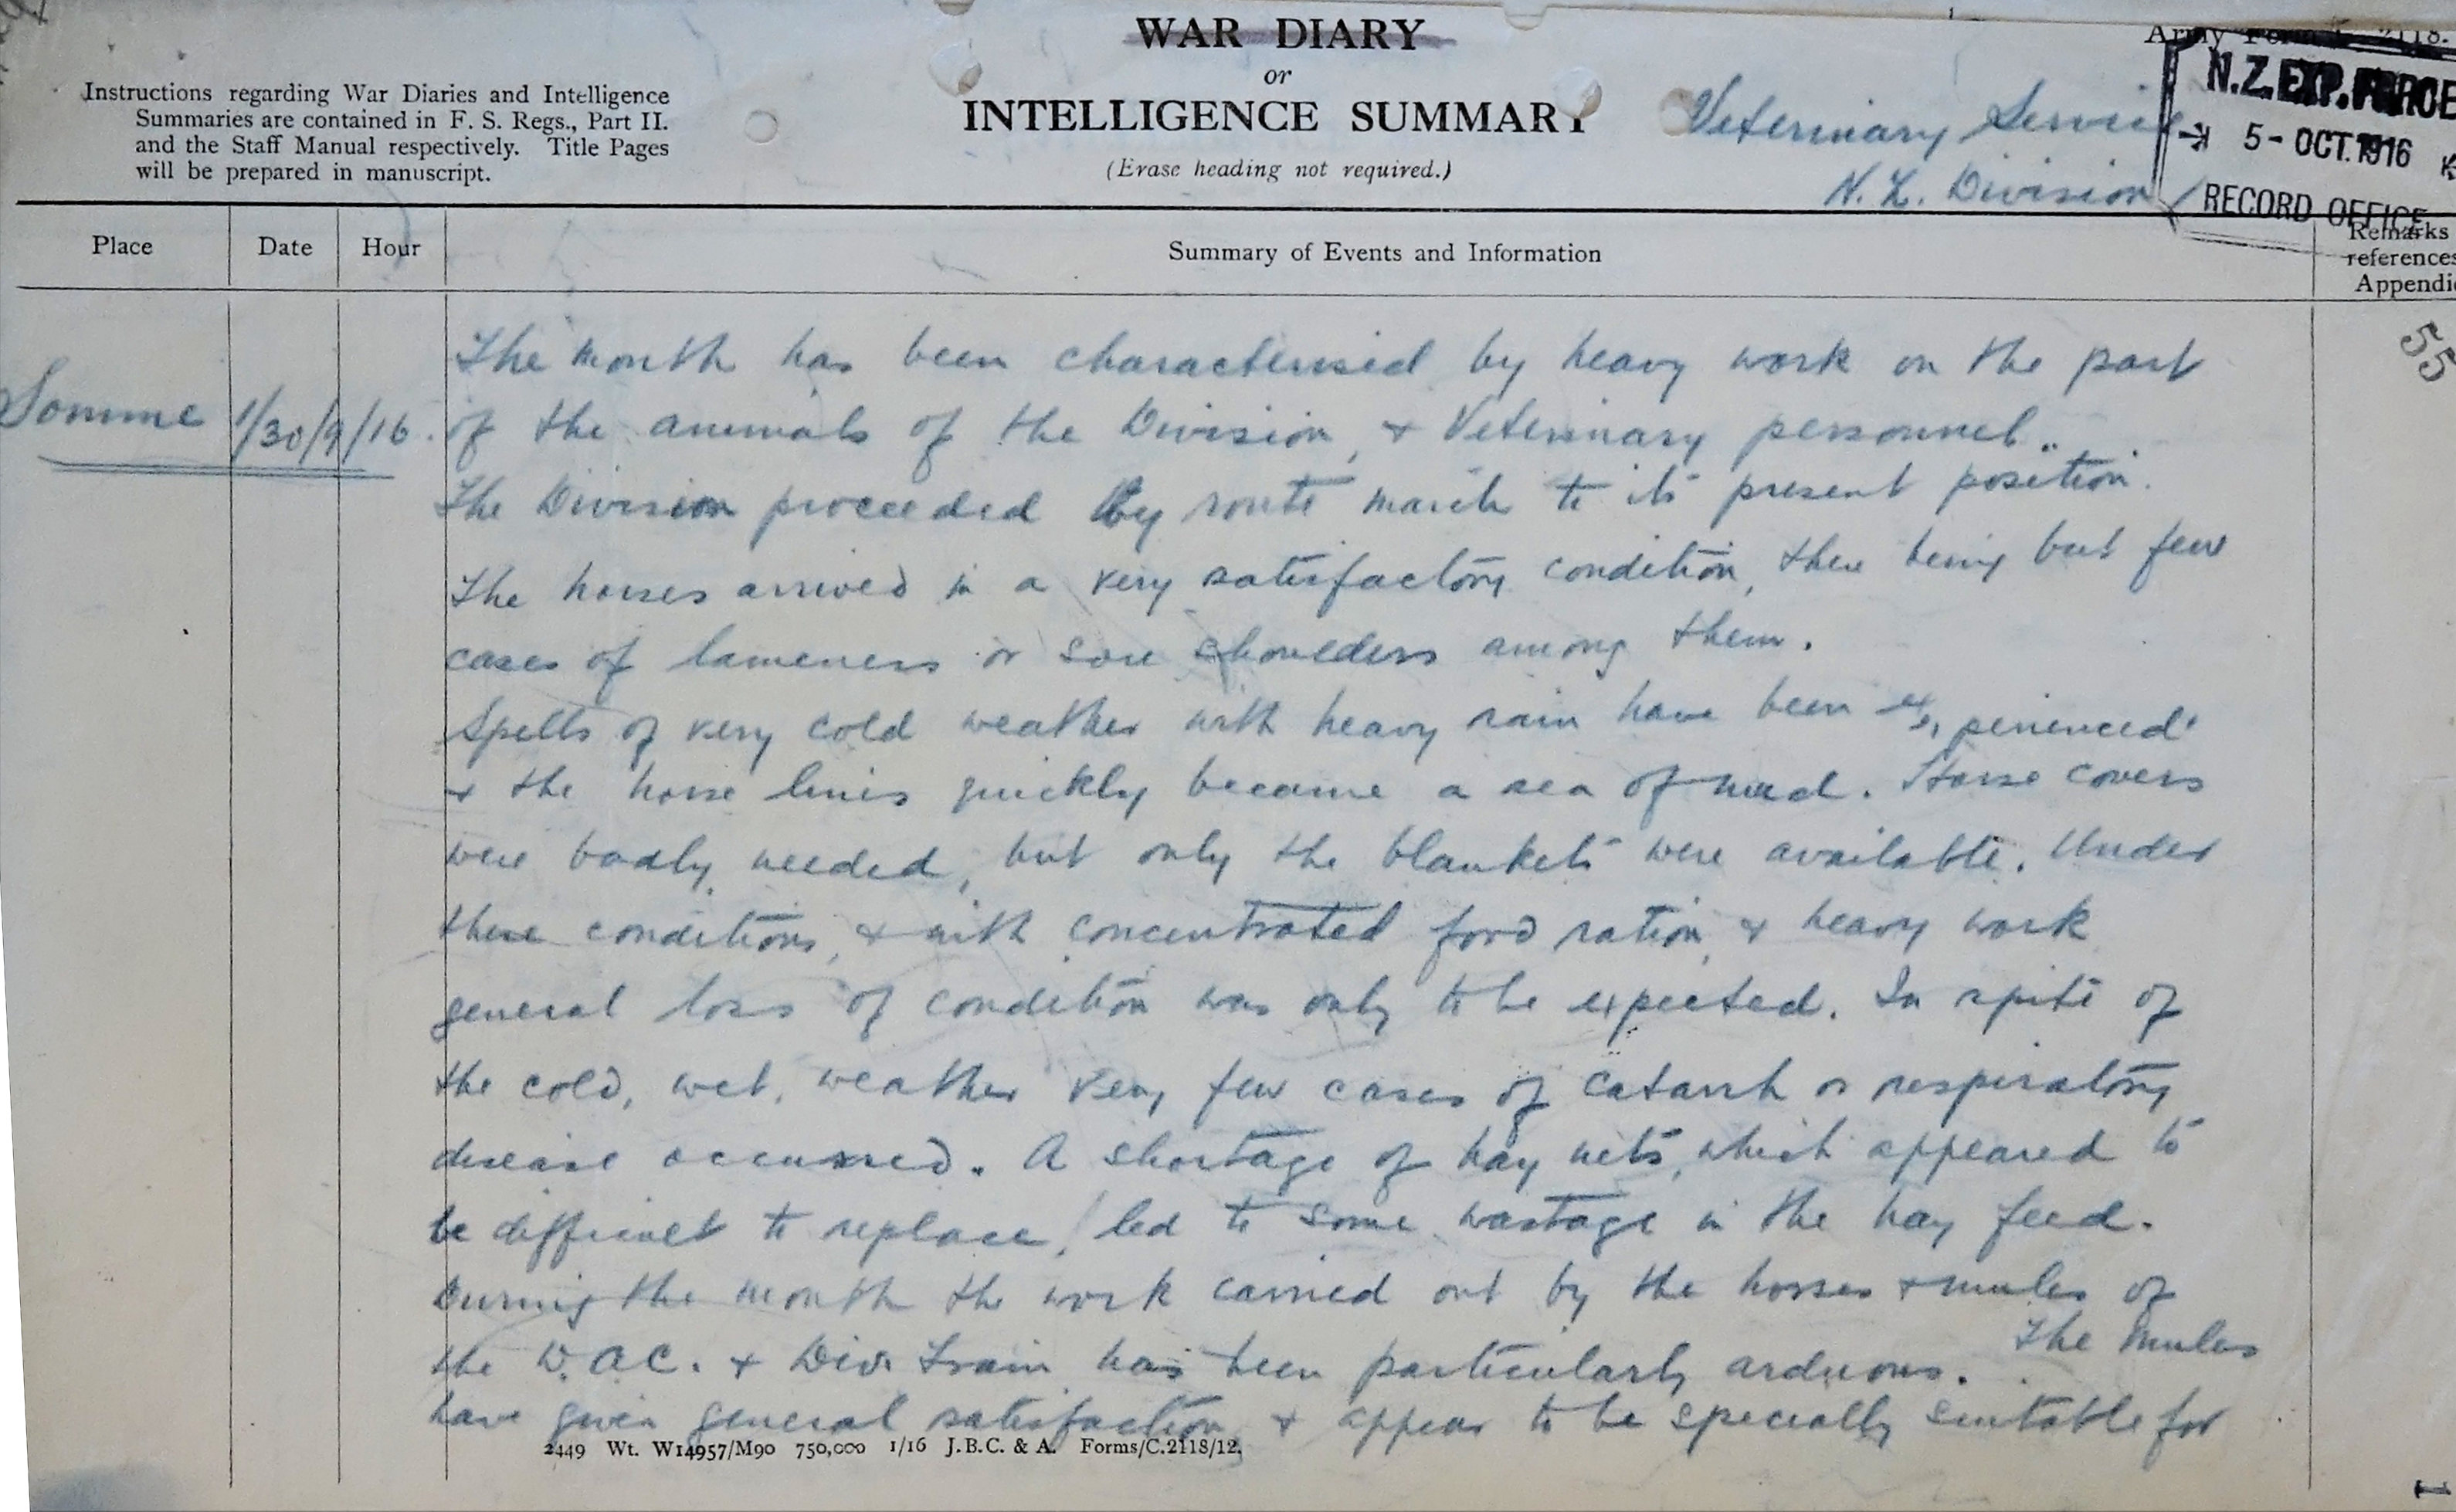 WAR DIARY
or
INTELLIGENCE SUMMARY
(Erase heading not required.)
Instructions regarding War Diaries and Intelligence
Summaries are contained in F. S. Regs., Part II.
and the Staff Manual respectively. Title Pages
will be prepared in manuscript.
Army Form 2118.
Veterinary Service
N.Z. Division
N.Z. EXP. FORCE
5 - OCT. 1916
RECORD OFFICE
Place Date Hour Summary of Events and Information
Remarks
references
Appendi
55
Somme 1/30/9/16.
The month has been characterised by heavy work on the part
of the animals of the Division, & Veterinary personnel..
The Division proceeded by route march to its present position.
The horses arrived in a very satisfactory condition, there being but few
cases of lameness or sore shoulders among them.
Spells of very cold weather with heavy rain have been experienced
& the horse lines quickly became a sea of mud. Horse covers
were badly needed, but only the blankets were available. Under
these conditions, & with concentrated food ration, & heavy work
general loss of condition was only to be expected. In spite of
the cold, wet, weather very few cases of catarrh or respiratory
disease occurred. A shortage of hay nets, which appeared to
be difficult to replace, led to some wastage in the hay feed.
During the month the work carried out by the horses & mules of
the D.A.C. & Div. Train has been particularly arduous. The mules
have given general satisfaction & appear to be specially suitable for
2449 Wt. W14957/M90 750,000 1/16 J.B.C. & A. Forms/C.2118/12.
1